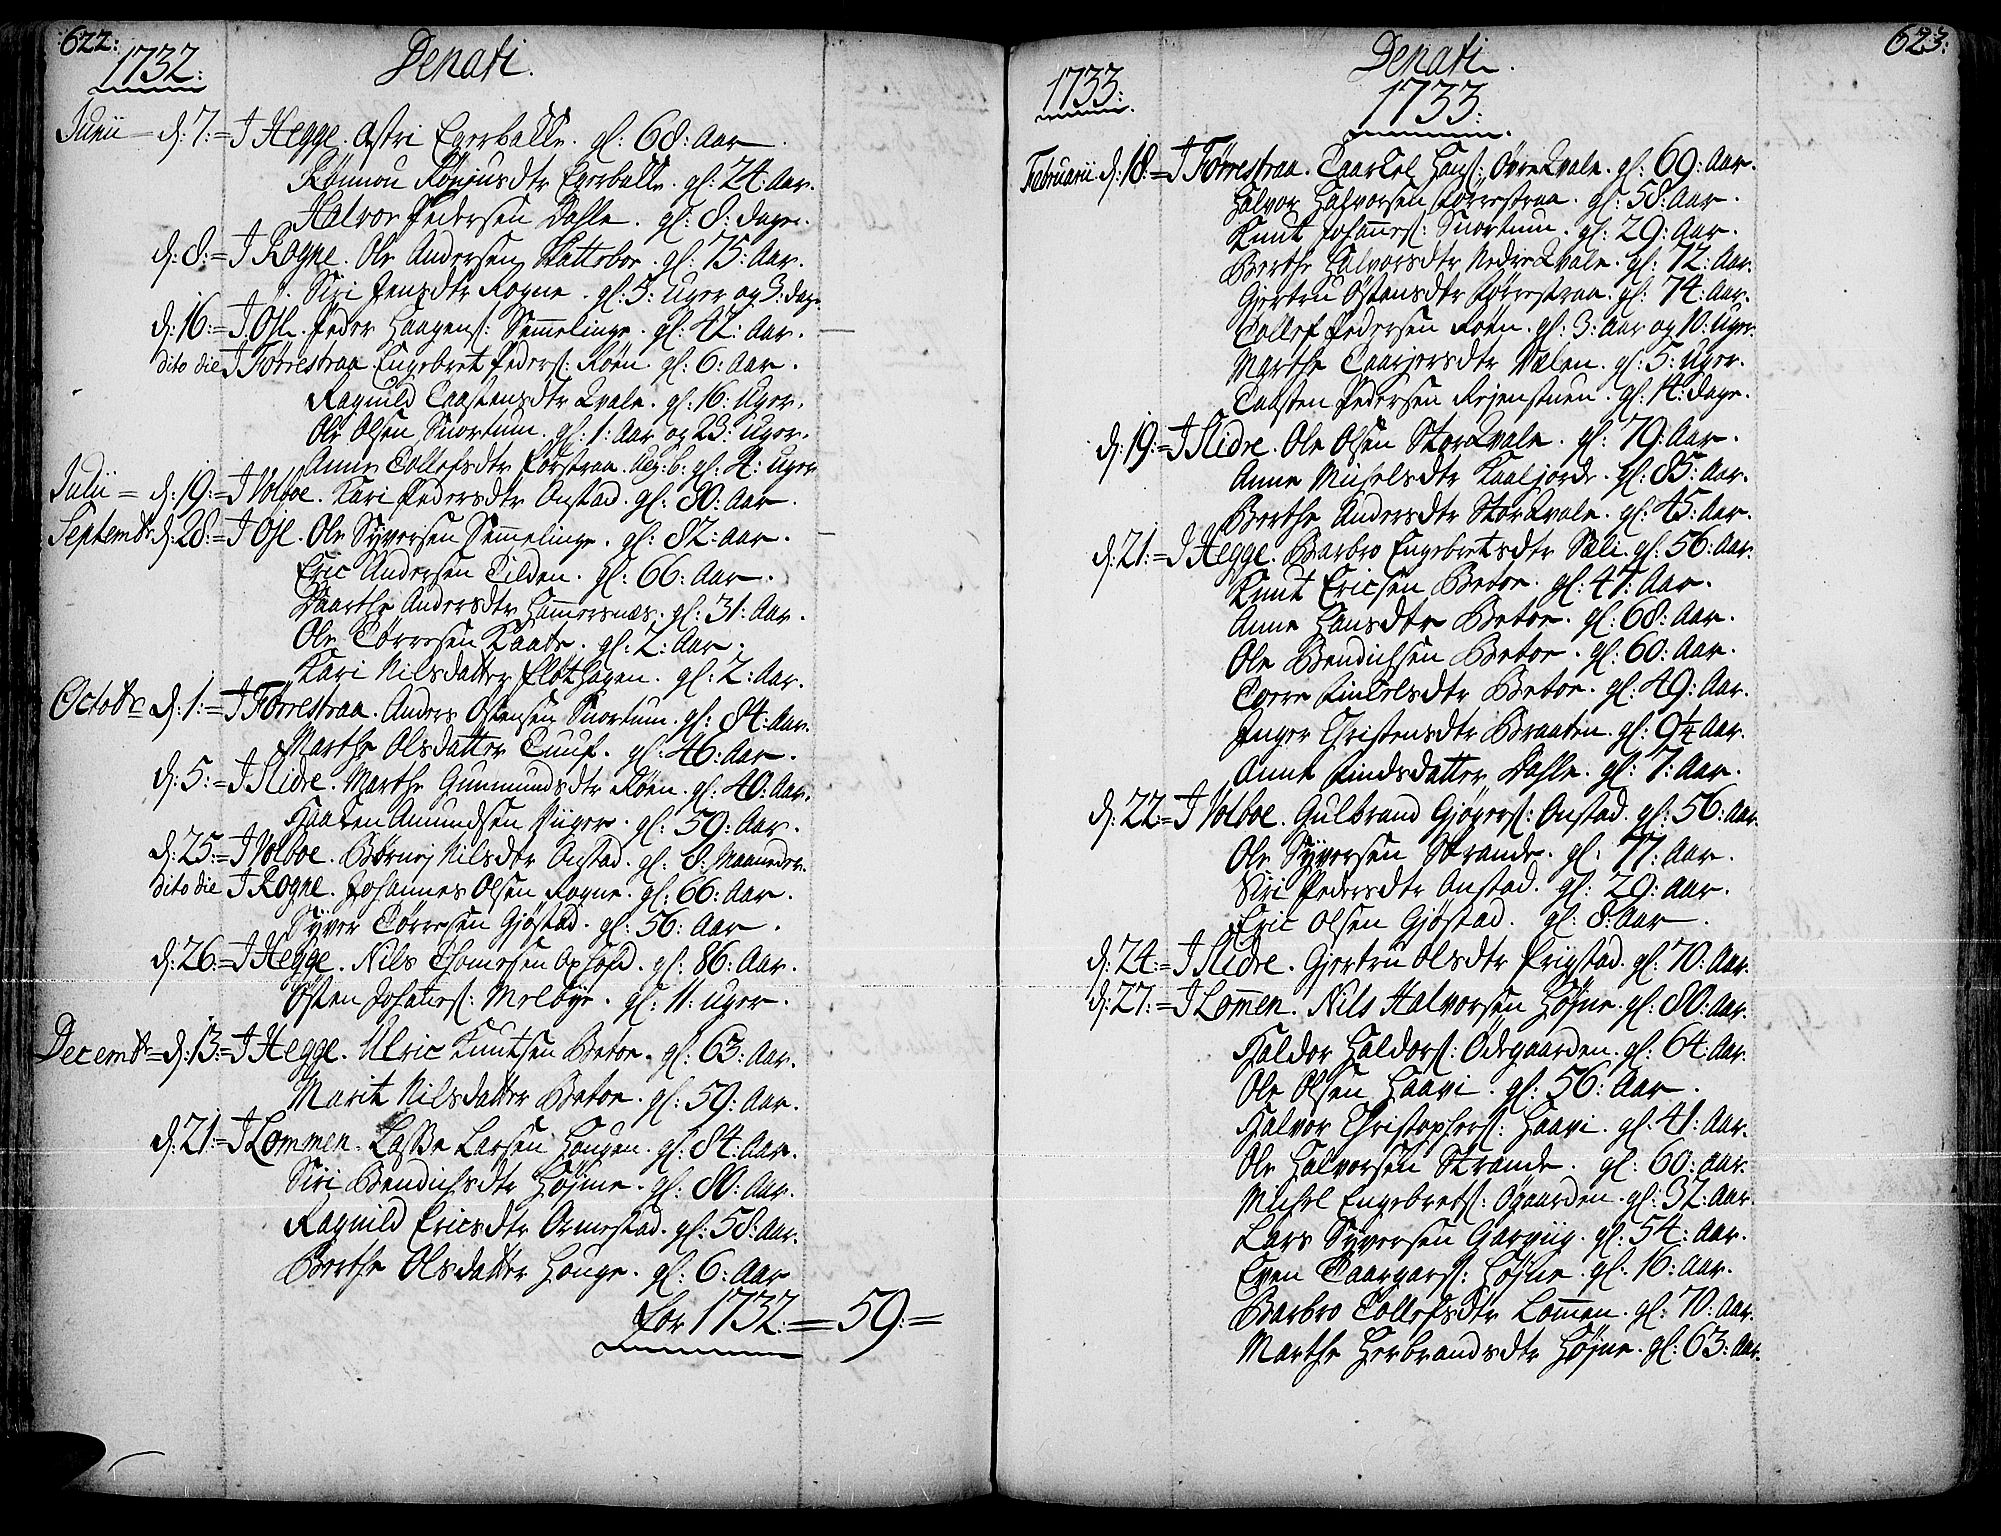 622:
1732:
Denati.
Junii d: 7: = J Hegge. Astri Egerbakke. gl: 68: Aar.
Rønnou Rønnusdtr Egerbakke. gl: 24: Aar.
Halvor Pedersen Dahle. gl: 8: dage.
d: 8: = J Rogne. Ole Andersen Skatteboe. gl: 75: Aar.
Siri Jensdtr Rogne. gl: 5: Uger og 3: dage.
d: 16: = J Øjl. Peder Haagens: Semmelinge. gl: 42: Aar.
dito die J Førrestraa. Engebret Peders: Røen. gl: 6: Aar.
Ragnild Taastensdtr Qvale. gl: 16: Uger.
Ole Olsen Snortum. gl: 1: Aar og 23: Uger.
Anne Tollefsdtr Førstraa. gl: 4: Uger
Julii = d: 19: = J Volboe. Kari Pedersdtr Anstad. gl: 80: Aar.
Septembr d: 28: = J Øjl. Ole Syversen Semmelinge. gl: 82: Aar.
Eric Andersen Tilden. gl: 66: Aar.
Maarthe Andersdtr Hammersnæs. gl: 31: Aar.
Ole Tørresen Kaate. gl: 2: Aar.
Kari Nilsdatter Fløthagen. gl: 2: Aar.
Octobr d: 1: = J Førrestraa. Anders Østensen Snortum. gl: 84: Aar.
Marthe Olsdatter Tuuf. gl: 46: Aar.
d: 5: = J Slidre. Marthe Gunmundsdtr Røen. gl: 40: Aar.
Haaken Amundsen gl: 59: Aar.
d: 25: = J Volboe. Børnej Nilsdtr Anstad. gl: 8: Maaneder.
dito die J Rogne. Johannes Olsen Rogne. gl: 66: Aar.
Syver Tørresen Gjøstad. gl: 56: Aar.
d: 26: = J Hegge. Nils Thomesen gl: 86: Aar.
Østen Johaness: Melbye. gl: 11: Uger.
Decembr = d: 13: = J Hegge. Ulric Knutsen Betoe. gl: 63: Aar.
Marit Nilsdatter Betoe. gl: 59: Aar.
d: 21: = J Lommen. Lasse Larsen Hougen. gl: 84: Aar.
Siri Bendichsdtr Højne. gl: 80: Aar.
Ragnild Ericsdtr Ormestad. gl: 58: Aar.
Berthe Olsdatter Houge. gl: 6: Aar
for 1732: = 59: =
623:
Denati.
1733:
1733:
Februarii d: 18: = J Førrestraa. Taarkel Hans: Øvre Qvale. gl: 69: Aar.
Halvor Halvorsen Førrestraa. gl: 58: Aar.
Knut Johannes: Snortum. gl: 29: Aar.
Berthe Halvorsdtr Nedre Qvale. gl: 72: Aar.
Gjertru Østensdtr Førrestraa. gl: 74: Aar.
Tollef Pedersen Røen. gl: 3: Aar og 10: Uger.
Marthe Taarjersdtr Valen. gl: 5: Uger.
Taasten Pedersen Rejenstuen. gl: 14: dage.
d: 19: = J Slidre. Ole Olsen StorQvale. gl: 79: Aar.
Anne Michelsdtr Kaaljorde. gl: 85: Aar.
Berthe Andersdtr StorQvale. gl: 45: Aar.
d: 21: = J Hegge. Barbro Engebretsdtr Sæli. gl: 56: Aar.
Knut Ericsen Betoe. gl: 47: Aar.
Anne Hansdtr Betoe. gl: 68: Aar.
Ole Bendichsen Betoe. gl: 60: Aar.
Tørre dtr Betoe. gl: 49: Aar.
Inger Christensdtr Braaten. gl: 94 Aar.
Anne Findsdatter Dahle. gl: 7: Aar.
d: 22: = J Volboe. Gulbrand Gjøgers: Anstad. gl: 56: Aar.
Ole Syversen Strande. gl: 77: Aar.
Siri Pedersdtr Anstad. gl: 29: Aar.
Eric Olsen Gjøstad. gl: 8: Aar.
d: 24: = J Slidre. Gjertru Olsdtr Trigstad. gl: 70: Aar.
d: 27: = J Lommen. Nils Halvorsen Højne. gl: 80: Aar.
Haldor Haldors: Ødegaarden. gl: 64: Aar.
Ole Olsen Haavi. gl: 56: Aar.
Halvor Christophers: Haavi. gl: 41: Aar.
Ole Halvorsen Strande. gl: 60: Aar.
Michel Engebrets: Øgaarden. gl: 32: Aar.
Lars Syversen Garviig. gl: 54: Aar.
Even Taargars: Højne. gl: 16: Aar.
Barbro Tollefsdtr Lommen. gl: 70: Aar.
Marthe Herbrandsdtr Højne. gl: 63: Aar.